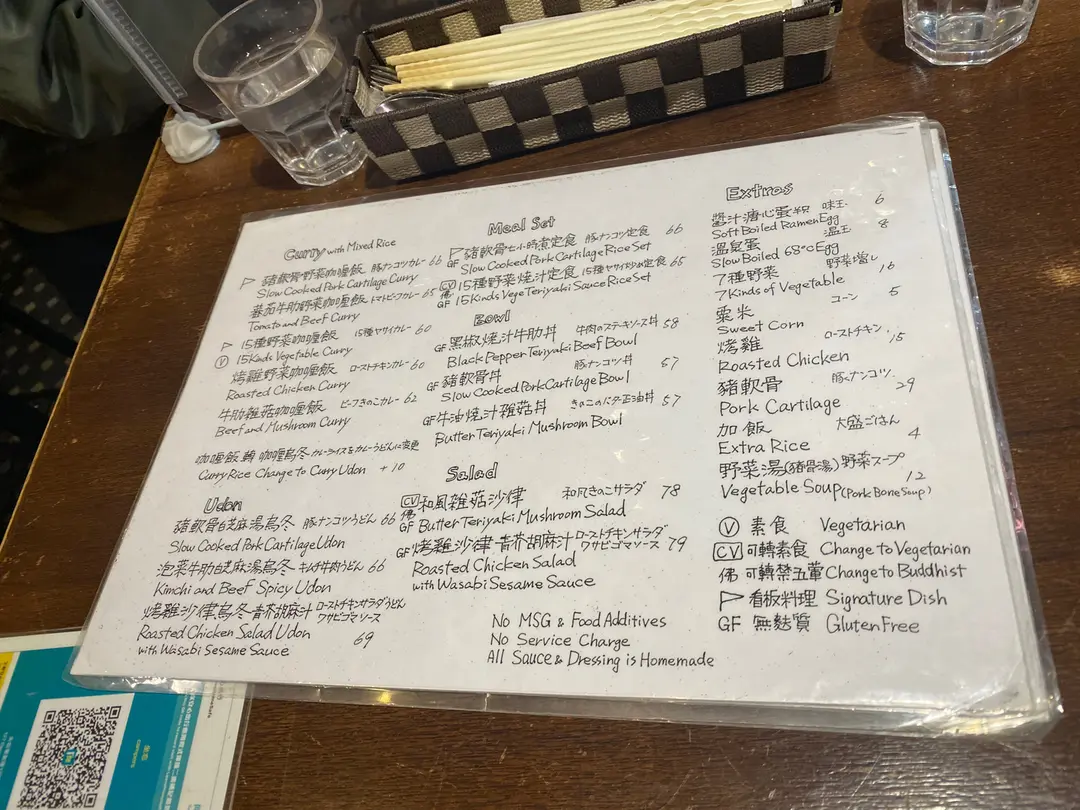 Curry with Mixed Rice
▷ 豬軟骨野菜咖喱飯 豚ナンコツカレー 66
Slow Cooked Pork Cartilage Curry
蕃茄牛肋野菜咖喱飯 トマトビーフカレー 65
Tomato and Beef Curry
▷ 15種野菜咖喱飯 15種ヤサイカレー 60
Ⓥ 15Kinds Vegetable Curry
烤雞野菜咖喱飯 ローストチキンカレー 60
Roasted Chicken Curry
牛肋雜菇咖喱飯 ビーフきのこカレー 62
Beef and Mushroom Curry
咖喱飯轉咖喱烏冬 カレーライスをカレーうどんに変更
Curry Rice Change to Curry Udon +10
Udon
豬軟骨白芝麻湯烏冬 豚ナンコツうどん 66
Slow Cooked Pork Cartilage Udon
泡菜牛肋白芝麻湯烏冬 キムチ牛肉うどん 66
Kimchi and Beef Spicy Udon
烤雞沙律烏冬-青芥胡麻汁 ローストチキンサラダうどん
ワサビゴマソース
Roasted Chicken Salad Udon
with Wasabi Sesame Sauce 69
Meal Set
▷ 豬軟骨七小時煮定食 豚ナンコツ定食 66
GF Slow Cooked Pork Cartilage Rice Set
CV 15種野菜燒汁定食 15種ヤサイ炒め定食 65
佛
GF 15Kinds Vege Teriyaki Sauce Rice Set
Bowl
GF 黑椒燒汁牛肋丼 牛肉のステーキソース丼 58
Black Pepper Teriyaki Beef Bowl
GF 豬軟骨丼 豚ナンコツ丼 57
Slow Cooked Pork Cartilage Bowl
GF 牛油燒汁雜菇丼 きのこのバター正油丼 57
Butter Teriyaki Mushroom Bowl
Salad
CV 和風雜菇沙律 和風きのこサラダ 78
佛
GF Butter Teriyaki Mushroom Salad
GF 烤雞沙律-青芥胡麻汁 ローストチキンサラダ
ワサビゴマソース 79
Roasted Chicken Salad
with Wasabi Sesame Sauce
No MSG & Food Additives
No Service Charge
All Sauce & Dressing is Homemade
Extras
醬汁溏心蛋 味玉 6
Soft Boiled Ramen Egg
溫泉蛋 温玉 8
Slow Boiled 68°C Egg
7種野菜 野菜増し 16
7 Kinds of Vegetable
粟米 コーン 5
Sweet Corn
烤雞 ローストチキン 15
Roasted Chicken
豬軟骨 豚ナンコツ 29
Pork Cartilage
加飯 大盛ごはん 4
Extra Rice
野菜湯(豬骨湯) 野菜スープ 12
Vegetable Soup (Pork Bone Soup)
Ⓥ 素食 Vegetarian
CV 可轉素食 Change to Vegetarian
佛 可轉禁五葷 Change to Buddhist
▷ 看板料理 Signature Dish
GF 無麩質 Gluten Free